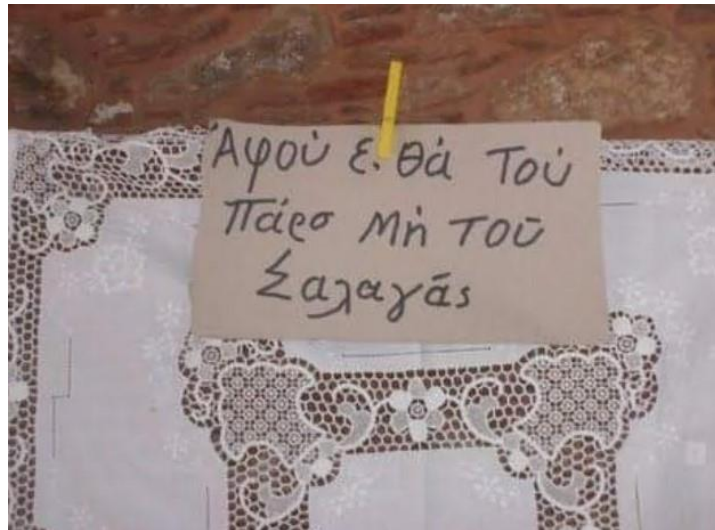 Ἀφού ε. θά Τού
πάρσ Μή τοῦ
Σαλαγᾶς